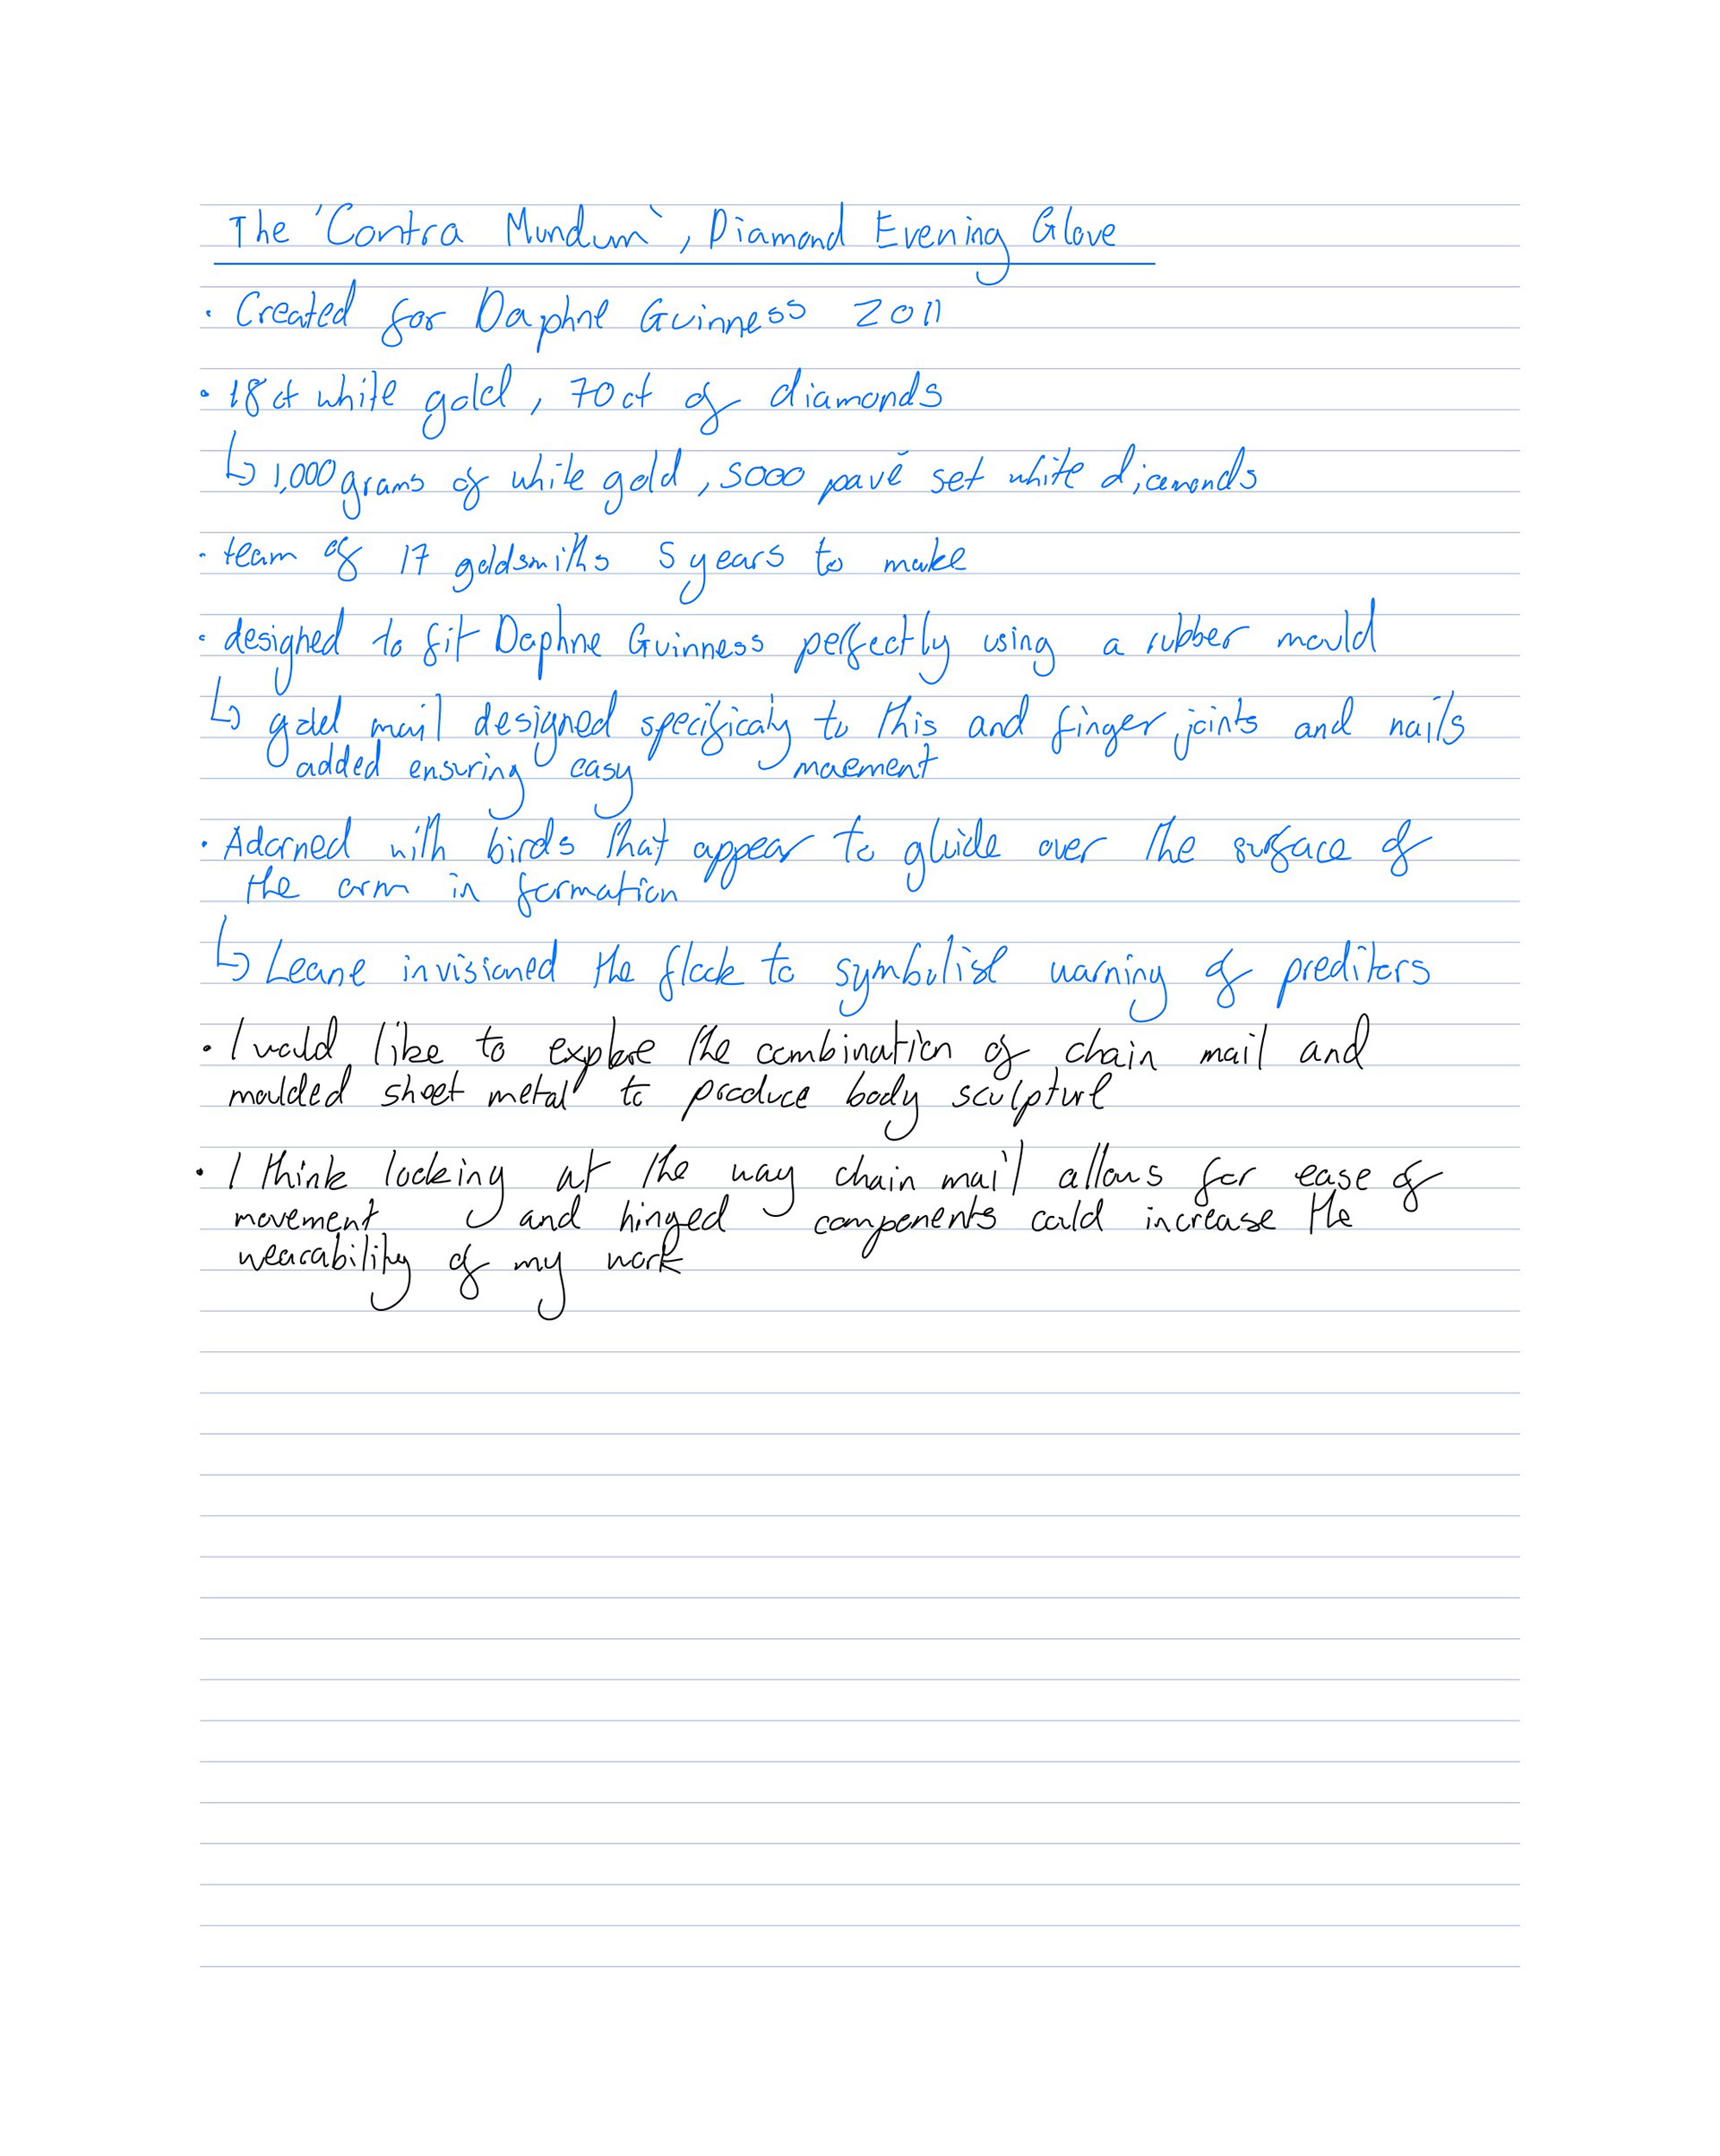 The 'Contra Mundum', Diamond Evening Glove
· Created for Daphne Guinness 2011
· 18ct white gold, 70ct of diamonds
↳ 1,000 grams of white gold, 5000 pavé set white diamonds
· team of 17 goldsmiths 5 years to make
· designed to fit Daphne Guinness perfectly using a rubber mould
↳ gold mail designed specificaly to this and finger joints and nails
added ensuring easy movement
· Adorned with birds that appear to gluide over the surface of
the arm in formation
↳ Leane invisioned the flock to symbolise warning of preditors
· I would like to explore the combination of chain mail and
moulded sheet metal to produce body sculpture
· I think looking at the way chain mail allows for ease of
movement and hinged components could increase the
wearability of my work